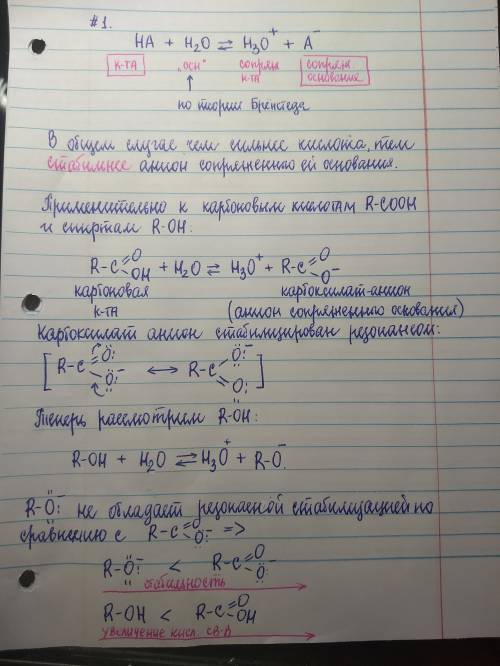 #1.
HA + H2O ⇌ H3O+ + A−
к-та "осн" сопряж. к-та сопряж. основание
по теории Бренстеда
В общем случае чем сильнее кислота, тем
стабильнее анион сопряженного ей основания.
Применительно к карбоновым кислотам R-COOH
и спиртам R-OH:
R-C(=O)OH + H2O ⇌ H3O+ + R-C(=O)O−
карбоновая карбоксилат-анион
к-та (анион сопряженного основания)
Карбоксилат анион стабилизирован резонансом:
[R-C(=O)O− ↔ R-C(O−)=O]
Теперь рассмотрим R-OH:
R-OH + H2O ⇌ H3O+ + R-O−.
R-O− не обладает резонасной стабилизацией по
сравнению с R-C(=O)O− =>
R-O− < R-C(=O)O−
стабильность
R-OH < R-C(=O)OH
увеличение кисл. св-в